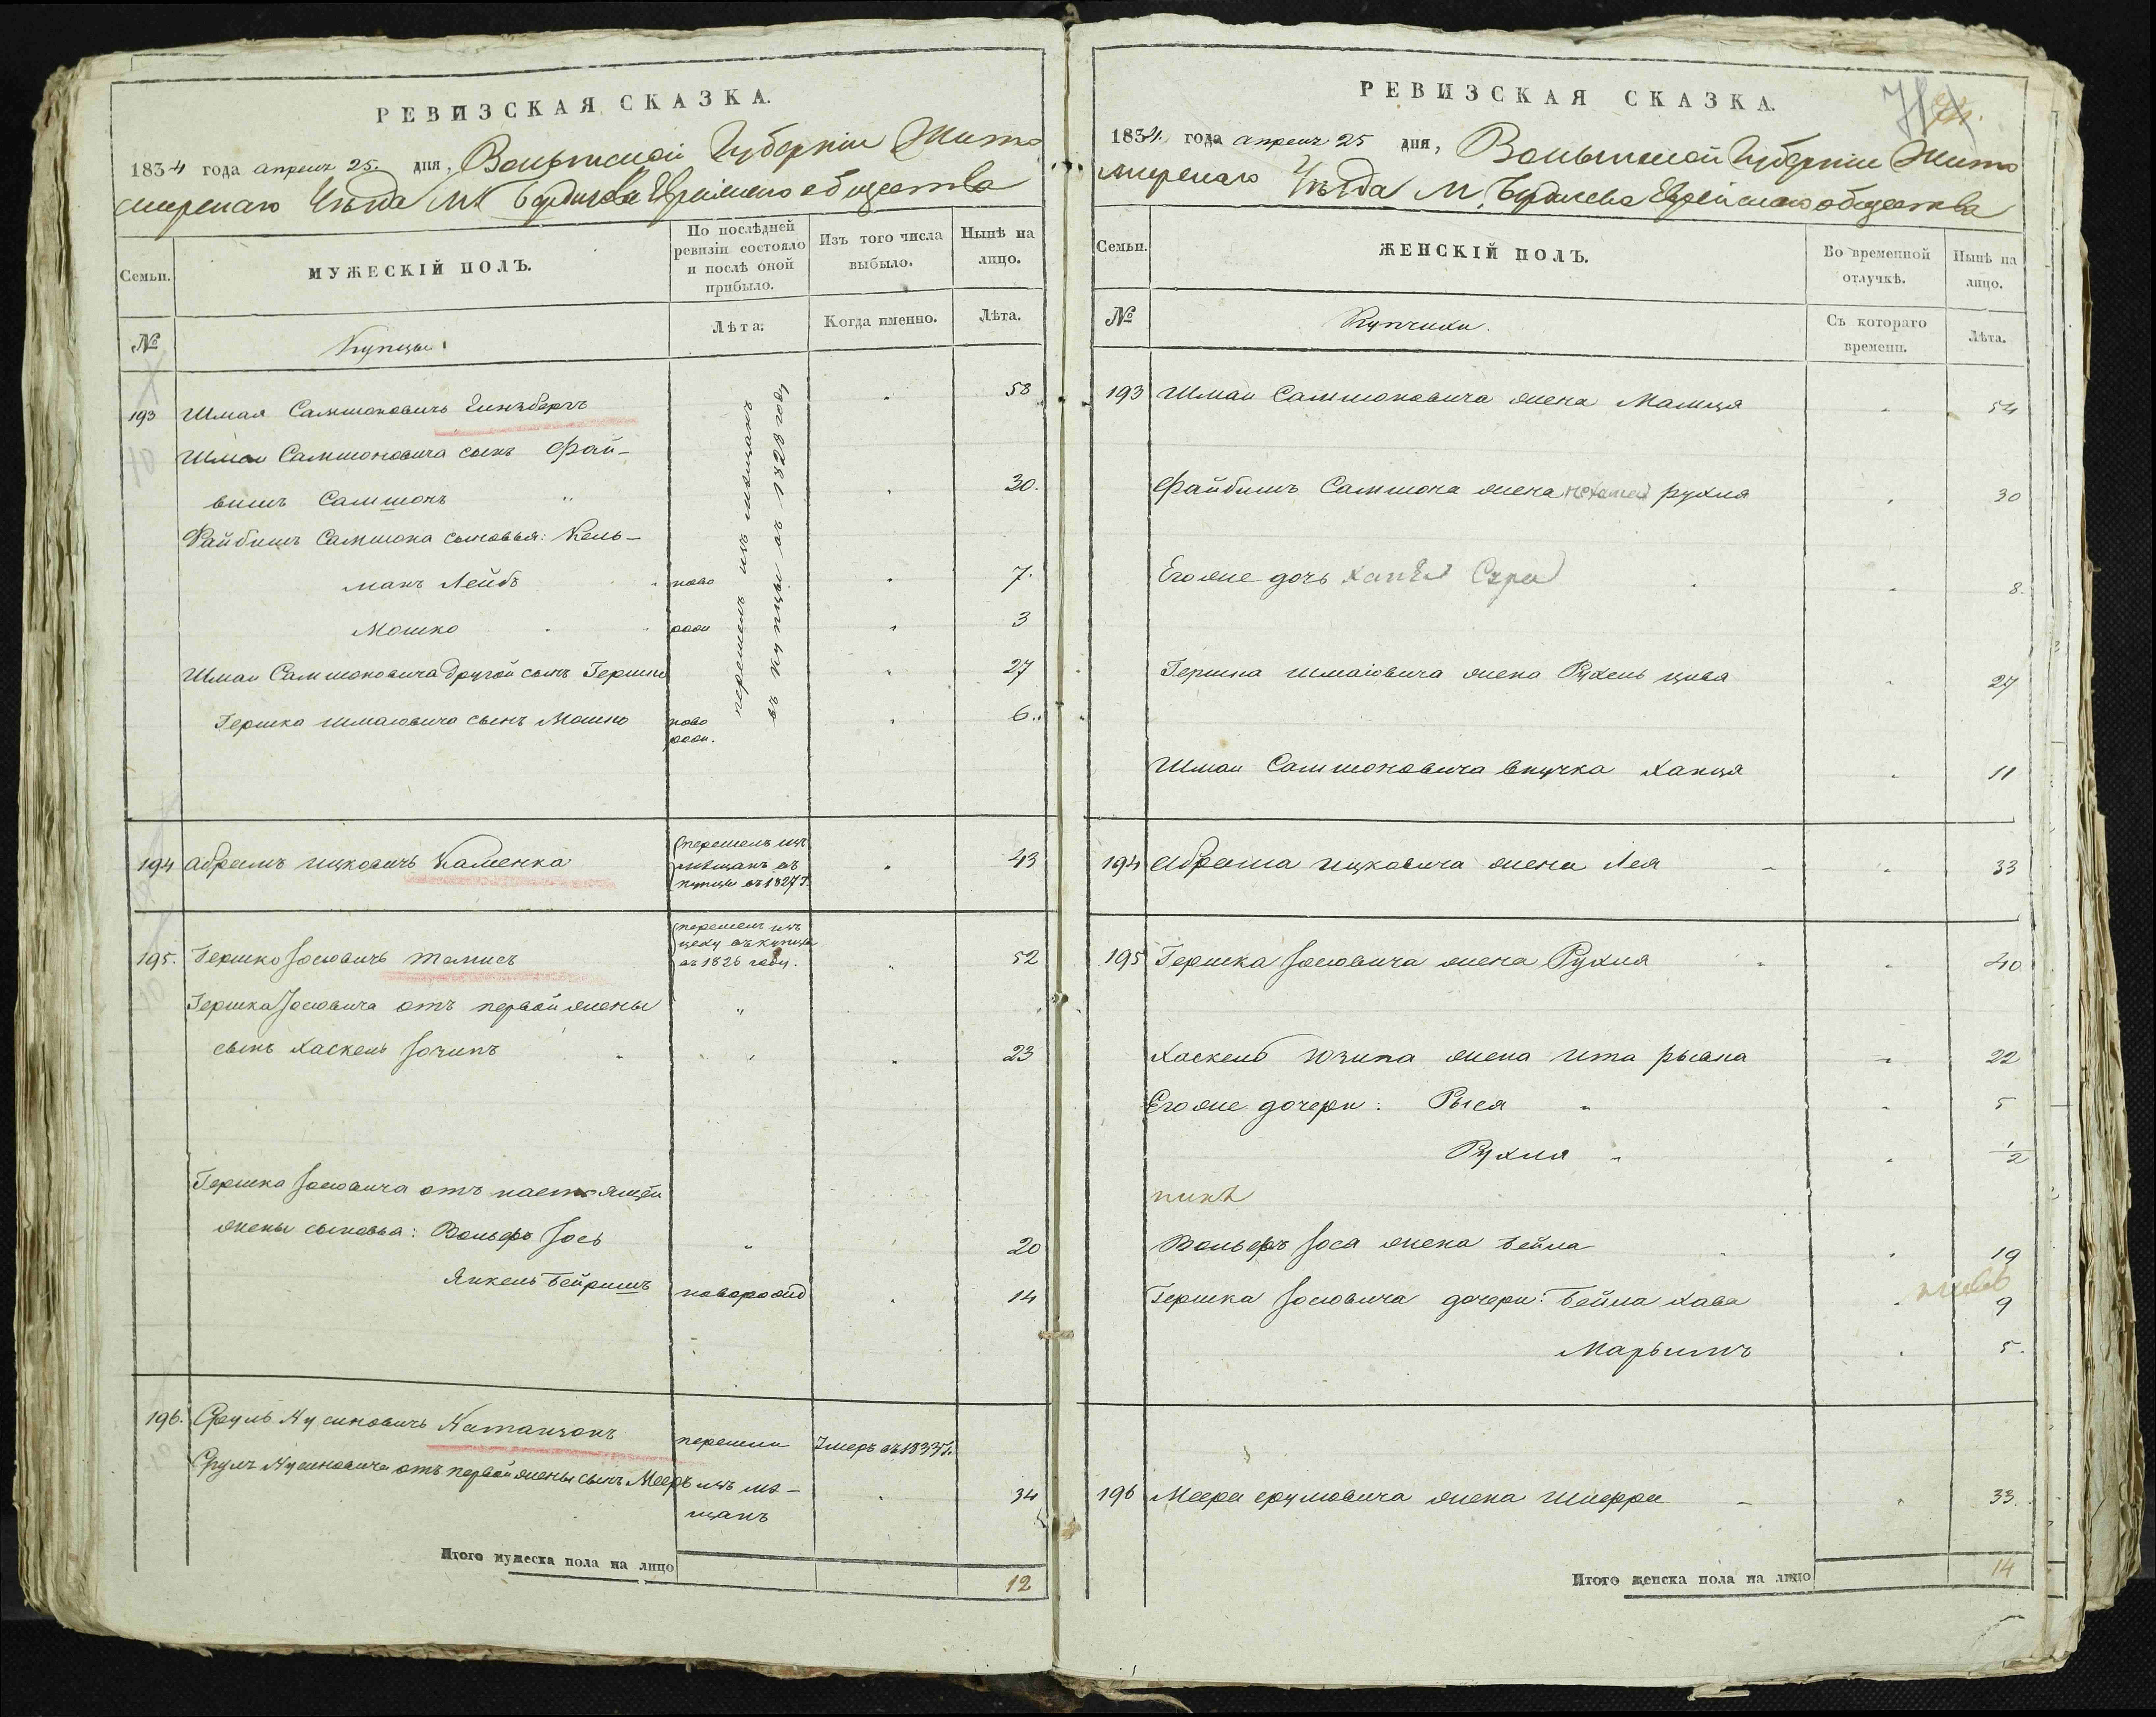 РЕВИЗСКАЯ СКАЗКА.
1834 года апреля 25. дня, Волынской Губернiи Жито
мирскаго Уѣзда М. Бердичева Еврейскаго общества
Семьи.
МУЖЕСКІЙ ПОЛЪ.
По послѣдней
ревизіи состояло
и послѣ оной
прибыло.
Изъ того числа
выбыло.
Нынѣ на
лицо.
№
Купцы
Лѣта.
Когда именно.
Лѣта.
193 Шмая Самшоновичъ Гинзбергъ 58
Шмаи Самшоновича сынъ Фай-
вишъ Самшонъ 30.
Файбишъ Самшона сыновья: Кель-
манъ Лейбъ ново 7.
Мошко рож 3
Шмаи Самшоновича другой сынъ Гершко 27
Гершка Шмаiовича сынъ Мошко ново 6
рож.
перешелъ изъ мѣщанъ
въ купцы въ 1828 году
194 Абрамъ Ицковичъ Каменка 43
перешелъ изъ
мѣщанъ въ
купцы въ 1827 г.
195. Гершко Іосiовичъ 52
перешелъ изъ
цеху въ купцы
въ 1826 году.
Гершка Іосiовича отъ первой жены
сынъ Хаскель Іозипъ 23
Гершка Іосiовича отъ настоящей
жены сыновья: Вольфъ Іось 20
Янкель Бейришъ наворожд 14
196. Сруль Нусиновичъ Натанзонъ перешли Умеръ въ 1833 г.
Сруля Нусиновича отъ первой жены сынъ Мееръ изъ мѣ- 34
щанъ
Итого мужеска пола на лицо 12
РЕВИЗСКАЯ СКАЗКА.
1834 года апреля 25 дня, Волынской Губернiи Жито
мирскаго Уѣзда М. Бердичева Еврейскаго общества
Семьи.
ЖЕНСКІЙ ПОЛЪ.
Во временной
отлучкѣ.
Нынѣ на
лицо.
№
Купчихи.
Съ котораго
времени.
Лѣта.
193 Шмаи Самшоновича жена Малця 54
Файбишъ Самшона жена Рухля 30
Его же дочь Сура 8.
Гершка Шмаiовича жена Рухель Цива 27
Шмаи Самшоновича внучка Ханця 11
194 Абрама Ицковича жена Лея 33
195 Гершка Іосiовича жена Рухля 40
Хаскель Юзипа жена Ита 22
Его же дочери: Рыся 5
Рухля 1/2
Вольфъ Іося жена Бейла 19
Гершка Іосiовича дочери: Бейла Хава 9
Марьимъ 5.
196 Меера Срулiовича жена Шифра 33.
Итого женска пола на лицо 14